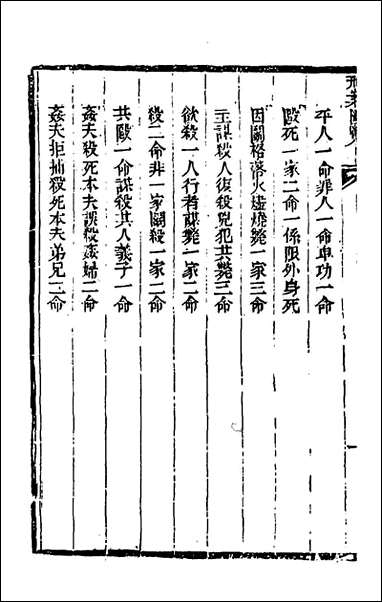 刑案匯覽
平人一命罪人一命卑功一命
毆死一家二命一係限外身死
因鬬格落火煙燒斃一家三命
主謀殺人復殺兇犯共斃三命
欲殺一人行者謀斃一家二命
殺二命非一家鬬殺一家二命
共毆一命謀殺其人義子一命
姦夫殺死本夫誤殺姦婦二命
姦夫拒捕殺死本夫弟兄二命